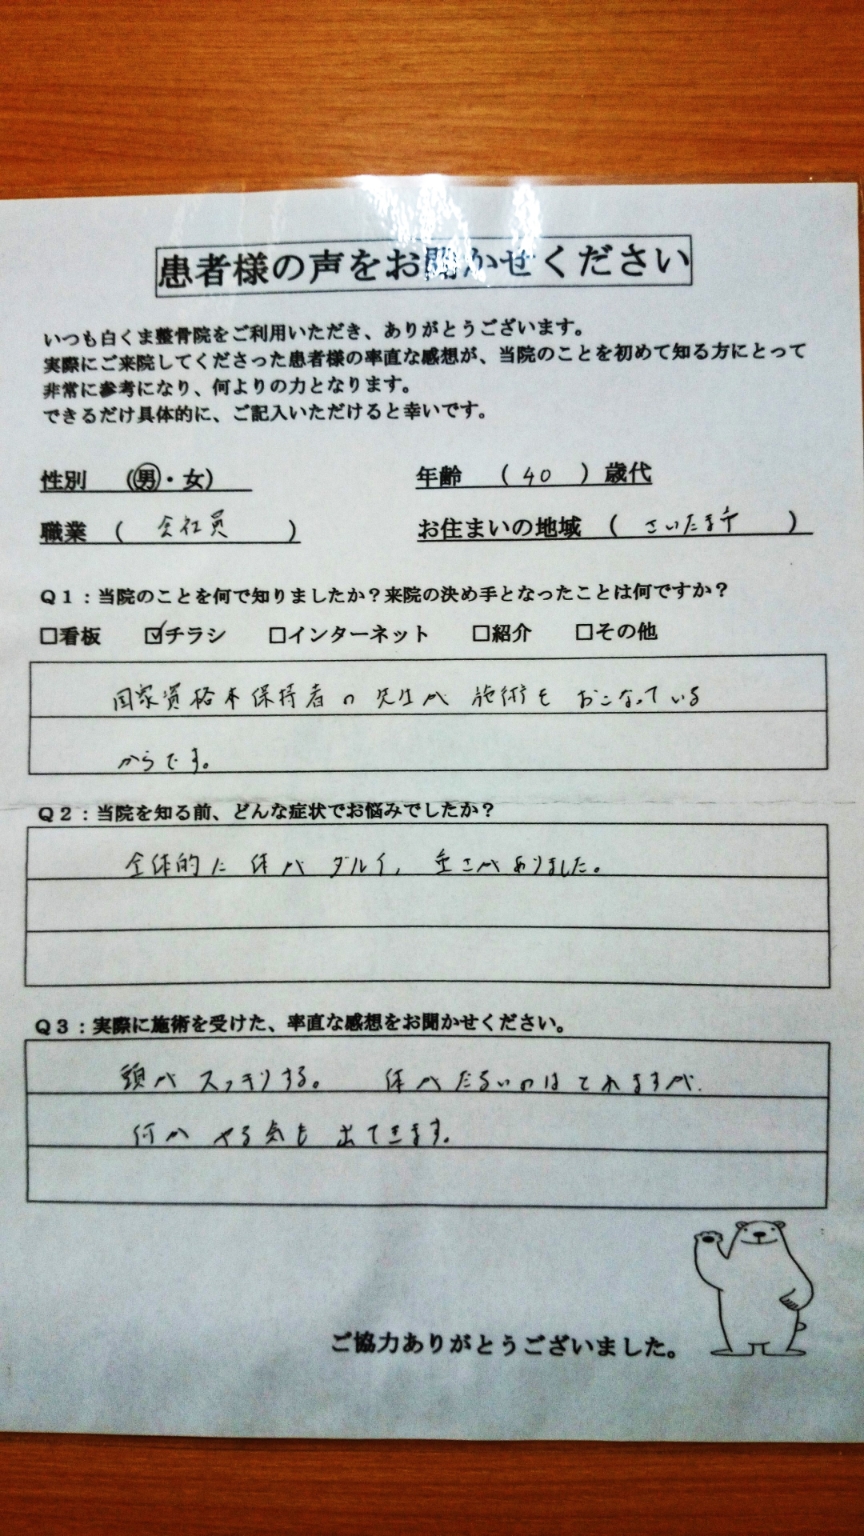 患者様の声をお聞かせください
いつも白くま整骨院をご利用いただき、ありがとうございます。
実際にご来院してくださった患者様の率直な感想が、当院のことを初めて知る方にとって
非常に参考になり、何よりの力となります。
できるだけ具体的に、ご記入いただけると幸いです。
性別 (男・女) 年齢 (40)歳代
職業 (会社員) お住まいの地域 (さいたま市)
Q1:当院のことを何で知りましたか?来院の決め手となったことは何ですか?
□看板 ☑チラシ □インターネット □紹介 □その他
国家資格 保持者の先生が 施術を おこなっている
からです。
Q2:当院を知る前、どんな症状でお悩みでしたか?
全体的に 体が ダルイ, 重さがありました。
Q3:実際に施術を受けた、率直な感想をお聞かせください。
頭が スッキリする。 体がだるいのは とれますが.
何か やる気も 出てきます。
ご協力ありがとうございました。